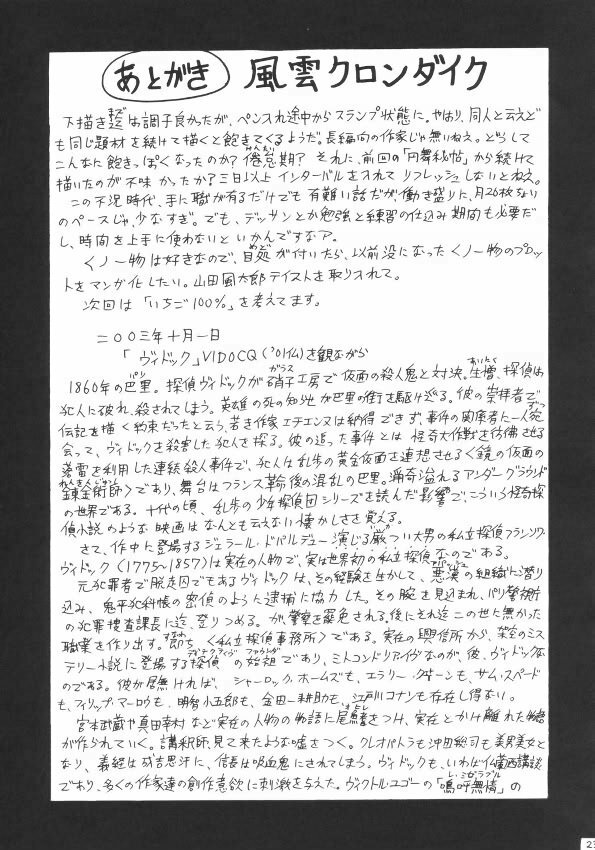 あとがき 風雲クロンダイク
下描き迄は調子良かったが、ペン入れ途中からスランプ状態に。やはり、同人と云えど
も同じ題材を続けて描くと飽きてくるようだ。長編向の作家じゃ無いねえ。どうして
こんなに飽きっぽくなったのか?倦怠期?それに、前回の「円舞秘帖」から続けて
描いたのが不味かったか?三日以上インターバルを入れてリフレッシュしないとねえ。
この不況時代、手に職が有るだけでも有難い話だが、働き盛りに、月26枚ちょり
のペースじゃ、少なすぎ。でも、デッサンとか勉強と練習の仕込み期間も必要だ
し、時間を上手に使わないといかんですなア。
くノ一物は好きなので、目処が付いたら、以前没になったくノ一物のプロッ
トをマンガ化したい。山田風太郎テイストを取り入れて。
次回は「いちご100%」を考えてます。
二〇〇三年十月一日
「ヴィドック」VIDOCQ('01仏)を観ながら
1860年の巴里。探偵ヴィドックが硝子工房で仮面の殺人鬼と対決。生憎、探偵は
犯人に破れ、殺されてしまう。英雄の死の知らせが巴里の街を駆け巡る。彼の崇拝者で
伝記を描く約束だったと云う、若き作家エチエンヌは納得できず、事件の関係者に一人宛
会って、ヴィドックを殺害した犯人を探る。彼の追った事件とは怪奇大作戦を彷彿させる
落雷を利用した連続殺人事件で、犯人は乱歩の黄金仮面を連想させる〈鏡の仮面の
錬金術師〉であり、舞台はフランス革命後の混乱の巴里。涌奇溢れるアンダーグラウンド
の世界である。十代の頃、乱歩の少年探偵団シリーズを読んだ影響で、こういう怪奇探
偵小説のような映画はなんとも云えない懐かしさを覚える。
さて、作中に登場するジェラール・ドパルデュー演じる厳つい大男の私立探偵フランソワ・
ヴィドック(1775〜1857)は実在の人物で、実は世界初の私立探偵なのである。
元犯罪者で脱走囚でもあるヴィドックは、その経験を生かして、悪漢の組織に潜り
込み、鬼平犯科帳の密偵のように逮捕に協力した。その腕を見込まれ、パリ警視庁
の犯罪捜査課長に迄、登りつめる。が、警察を罷免される。後にそれ迄この世に無かった
職業を作り出す。即ち〈私立探偵事務所〉である。実在の興信所から、架空のミス
テリー小説に登場する探偵の始祖であり、ミトコンドリアイヴなのが、彼、ヴィドックな
のである。彼が居無ければ、シャーロック・ホームズも、エラリー・クイーンも、サム・スペード
も、フィリップ・マーロウも、明智小五郎も、金田一耕助も、江戸川コナンも存在し得ない。
宮本武蔵や真田幸村など実在の人物の物語に尾鰭をつけ、実在とかけ離れた物語
が作られていく。講釈師、見て来たような嘘をつく。クレオパトラも沖田総司も美男美女と
なり、義経は成吉思汗に、信長は吸血鬼にされてしまう。ヴィドックも、いわば仏蘭西講談
であり、多くの作家達の創作意欲に刺激を与えた。ヴィクトル・ユゴーの「嗚呼無情」の